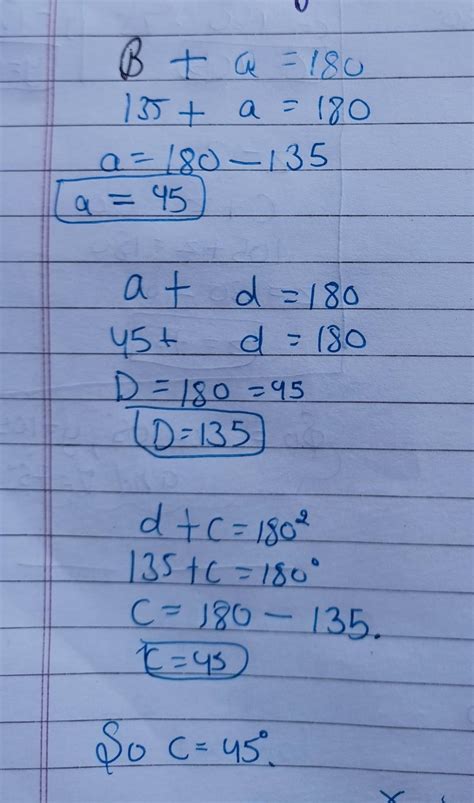 B + a = 180
135 + a = 180
a = 180 - 135
a = 45
a + d = 180
45 + d = 180
D = 180 = 45
D = 135
d + c = 180²
135 + c = 180°
C = 180 - 135.
c = 45
So c = 45°.